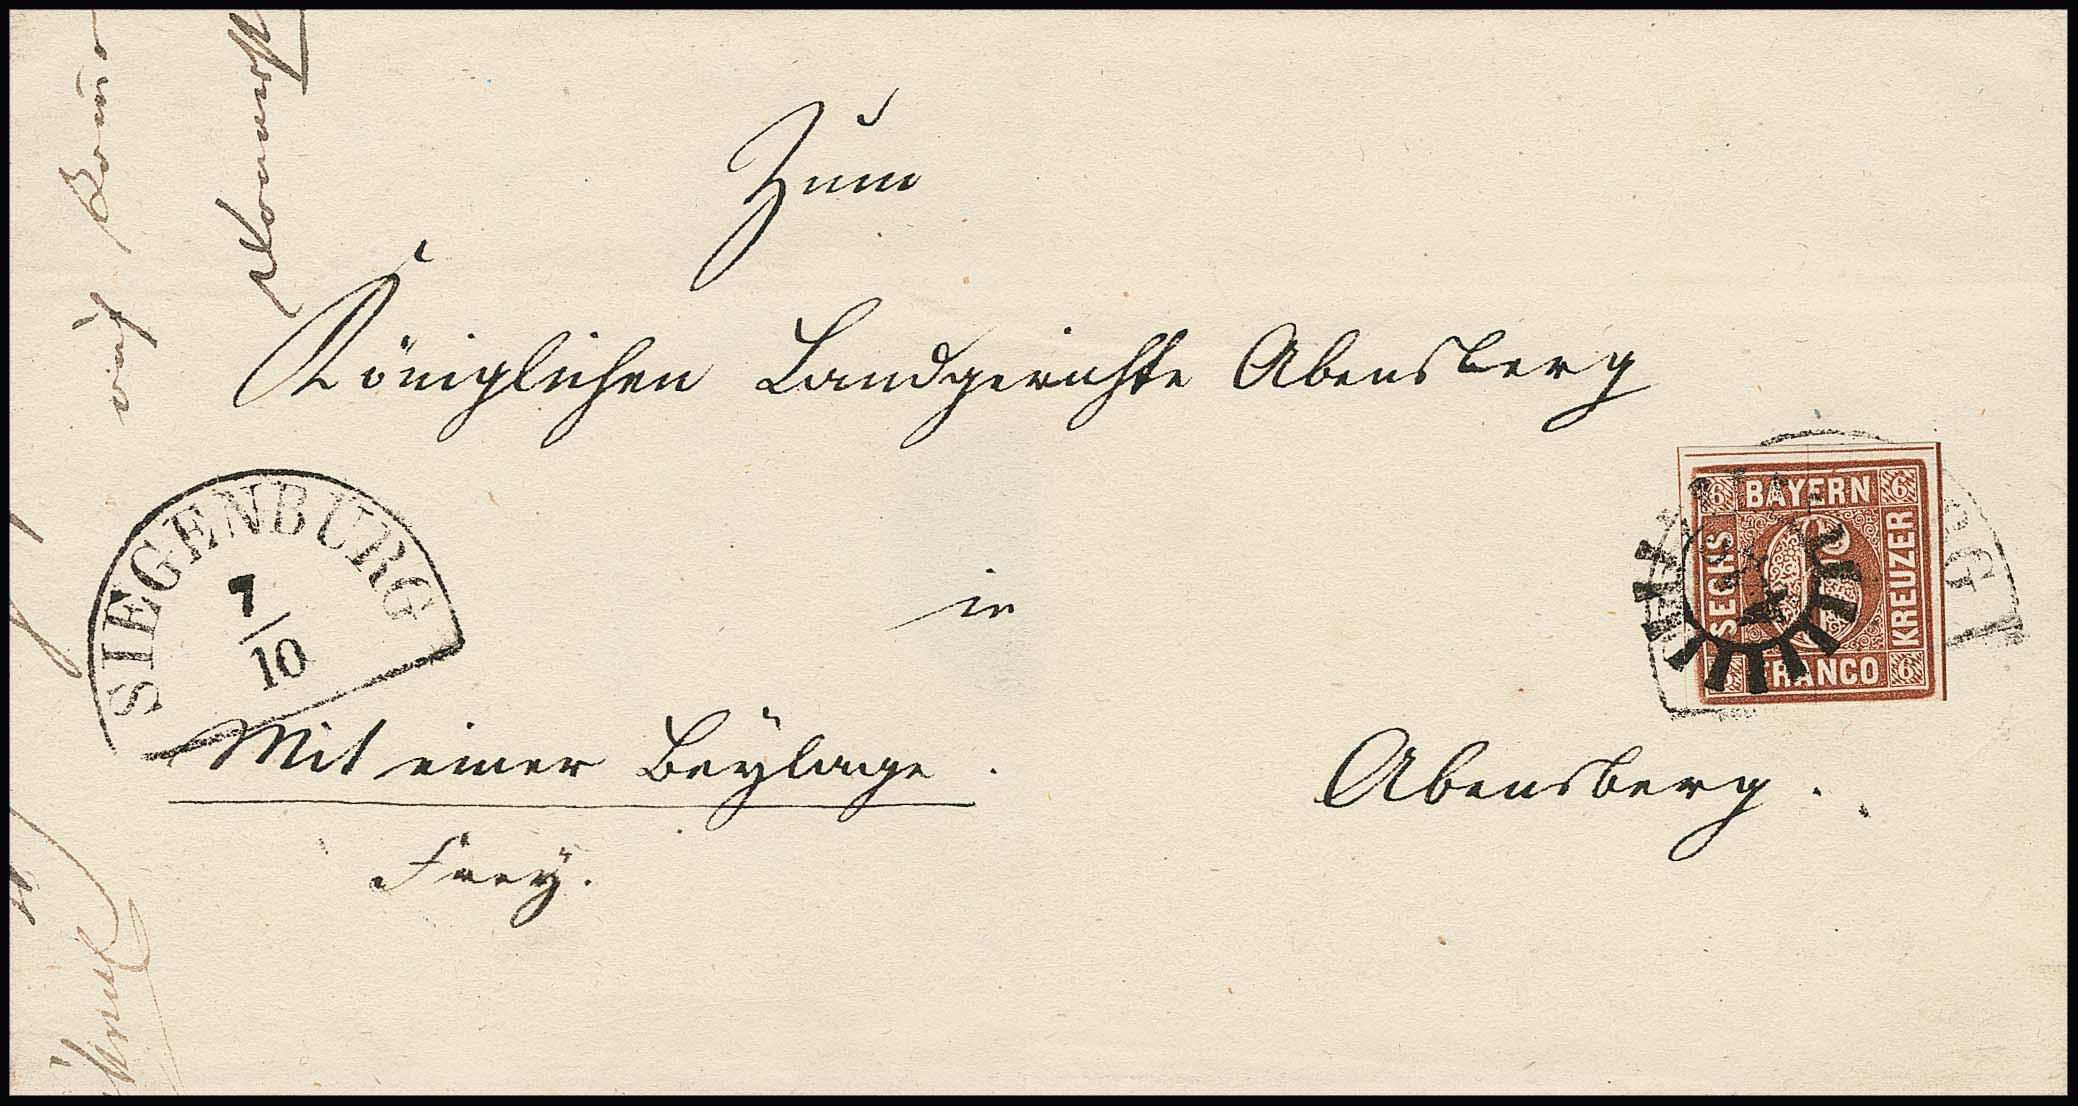 Zum
Königlichen Landgerichte Abensberg
SIEGENBURG
7/10
in
6 BAYERN 6
SECHS
KREUZER
6 FRANCO 6
Mit einer Beylage.
Abensberg.
Frey.